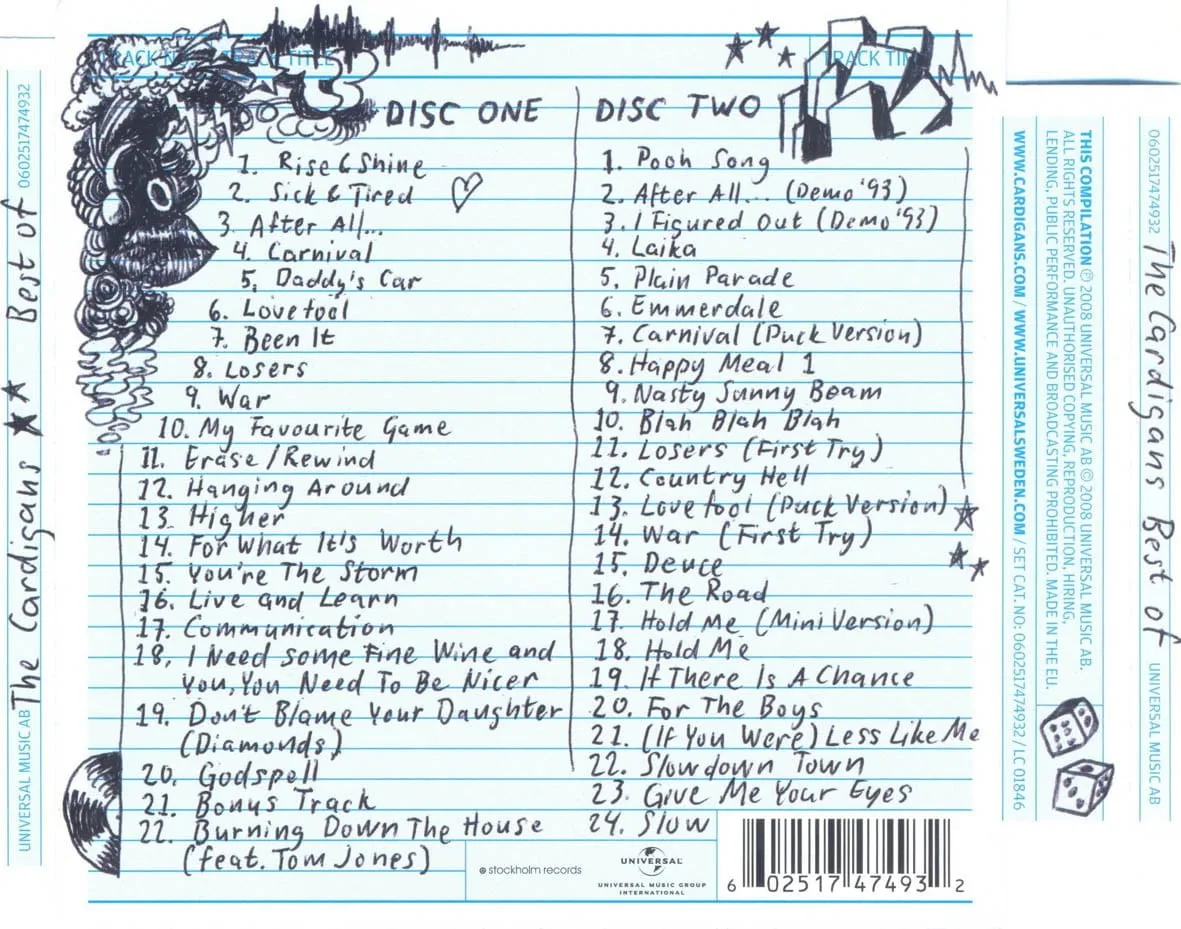 The Cardigans ★★ Best of
UNIVERSAL MUSIC AB
0602517474932
TRACK TITLE
DISC ONE
1. Rise & Shine
2. Sick & Tired
3. After All...
4. Carnival
5. Daddy's Car
6. Lovefool
7. Been It
8. Losers
9. War
10. My Favourite Game
11. Erase/Rewind
12. Hanging Around
13. Higher
14. For What It's Worth
15. You're The Storm
16. Live and Learn
17. Communication
18. I Need Some Fine Wine and
You, You Need To Be Nicer
19. Don't Blame Your Daughter
(Diamonds)
20. Godspell
21. Bonus Track
22. Burning Down The House
(feat. Tom Jones)
TRACK
DISC TWO
1. Pooh Song
2. After All... (Demo '93)
3. I Figured Out (Demo '93)
4. Laika
5. Plain Parade
6. Emmerdale
7. Carnival (Puck Version)
8. Happy Meal 1
9. Nasty Sunny Beam
10. Blah Blah Blah
11. Losers (First Try)
12. Country Hell
13. Lovefool (Puck Version)
14. War (First Try)
15. Deuce
16. The Road
17. Hold Me (Mini Version)
18. Hold Me
19. If There Is A Chance
20. For The Boys
21. (If You Were) Less Like Me
22. Slowdown Town
23. Give Me Your Eyes
24. Slow
stockholm records
UNIVERSAL
UNIVERSAL MUSIC GROUP
INTERNATIONAL
6 02517 47493 2
THIS COMPILATION ℗ 2008 UNIVERSAL MUSIC AB © 2008 UNIVERSAL MUSIC AB.
ALL RIGHTS RESERVED. UNAUTHORISED COPYING, REPRODUCTION, HIRING,
LENDING, PUBLIC PERFORMANCE AND BROADCASTING PROHIBITED. MADE IN THE EU.
WWW.CARDIGANS.COM / WWW.UNIVERSALSWEDEN.COM / SET CAT.NO: 0602517474932 / LC 01846
0602517474932
The Cardigans Best of
UNIVERSAL MUSIC AB